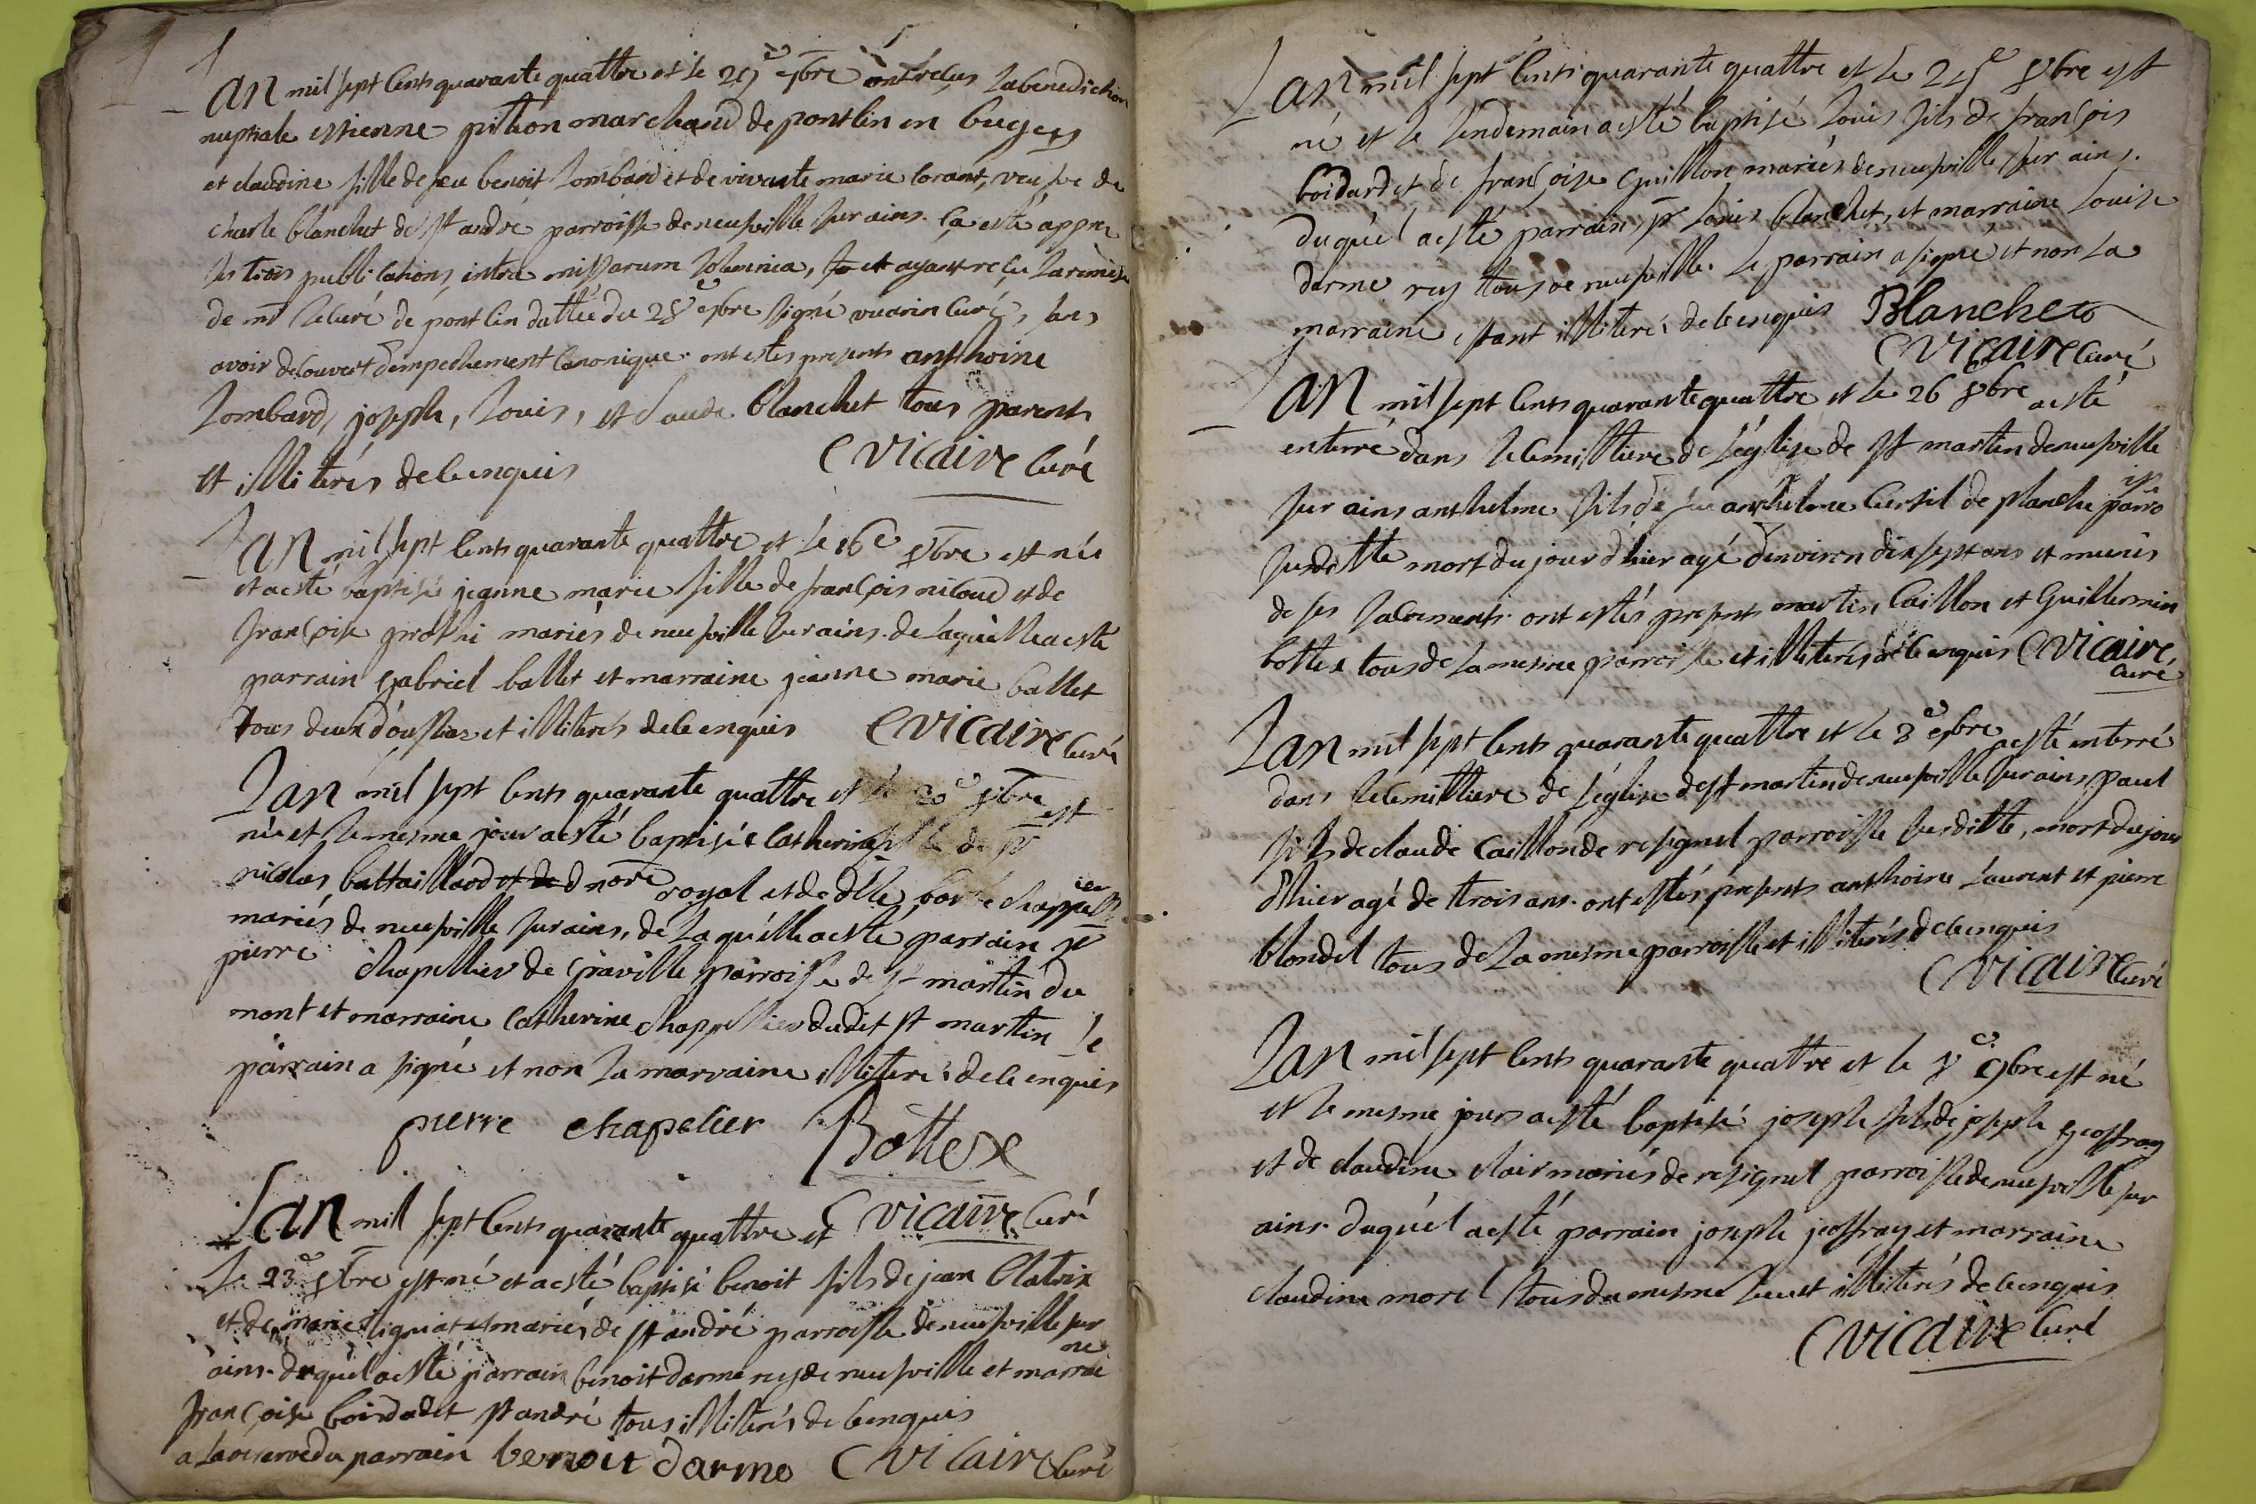 Lan mil sept cents quarante quattre et le 29e 7bre ont reçus la benediction
nuptiale estienne pithon marchand de pontlin en bugeys
et claudine fille de feu benoit Lombard et de vivante marie lorant, veufve de
charle blanchet de st andré parroisse de neufville sur ains. ça esté apprés
les trois publications, intra missarum solemnia, et ayant reçu la remise
de mr le curé de pontlin dattée du 28e 7bre signé vuarin curé, sans
avoir decouvert d'empechement canonique. ont estes presents anthoine
Lombard, joseph, Louis, et claude blanchet tous parents
et illiterés de ce enquis CVicaire curé
Lan mil sept cents quarante quattre et le 16e 8bre est née
et a esté baptisée jeanne marie fille de françois niloud et de
françoise mariés de neufville sur ains. de laquelle a esté
parrain gabriel ballet et marraine jeanne marie ballet
tous deux et illiterés de ce enquis CVicaire curé
Lan mil sept cents quarante quattre et le 20e 8bre est
née et le mesme jour a esté baptisée catherine fille de sr
nicolas battaillard et de d nore royal et de dlle chappellier
mariés de neufville sur ains, de laquelle a esté parrain sr
pierre chapellier de parroisse de st martin du
mont et marraine catherine chappellier dudit st martin le
parrain a signé et non la marraine illiterée de ce enquis
pierre chapelier Bottex
Lan mil sept cents quarante quattre et CVicaire curé
le 23e 8bre est né et a esté baptisé benoit fils de jean Blatrix
et de marie mariés de st andré parroisse de neufville sur
ains. duquel a esté parrain benoit darmerey de neufville et marraine
françoise boirdadet st andré tous illiterés de ce enquis
a la reserve du parrain benoit darme CVicaire curé
Lan mil sept cents quarante quattre et le 25e 8bre est
né et le lendemain a esté baptisé Louis fils de françois
boidard et de françoise guillon mariés de neufville sur ains.
duquel a esté parrain sr Louis blanchet, et marraine Louise
darmerey tous de neufville. le parrain a signé et non la
marraine estant illiterée de ce enquis Blanchet
CVicaire curé
Lan mil sept cents quarante quattre et le 26 8bre a esté
enterré dans le cemittiere de l'église de st martin de neufville
sur ains anthelme fils de feu anthelme de planche parroisse
susditte mort du jour d'hier agé d'environ dix sept ans et munis
de ses sacrements. ont estés presents martin Caillon et Guillermin
bottex tous de la mesme parroisse et illiterés de ce enquis CVicaire
curé
Lan mil sept cents quarante quattre et le 3e 9bre a esté enterré
dans le cemittiere de l'église de st martin de neufville sur ains paul
fils de claude Caillon de resignel parroisse susditte, mort du jour
d'hier agé de trois ans. ont estés presents anthoine Laurent et pierre
blondel tous de la mesme parroisse et illiterés de ce enquis
CVicaire curé
Lan mil sept cents quarante quattre et le 8e 9bre est né
et le mesme jours a esté baptisé joseph fils de joseph geoffray
et de claudine clair mariés de resignel parroisse de neufville sur
ains. duquel a esté parrain joseph jeoffray et marraine
claudine morel tous du mesme lieu et illiterés de ce enquis
CVicaire curé